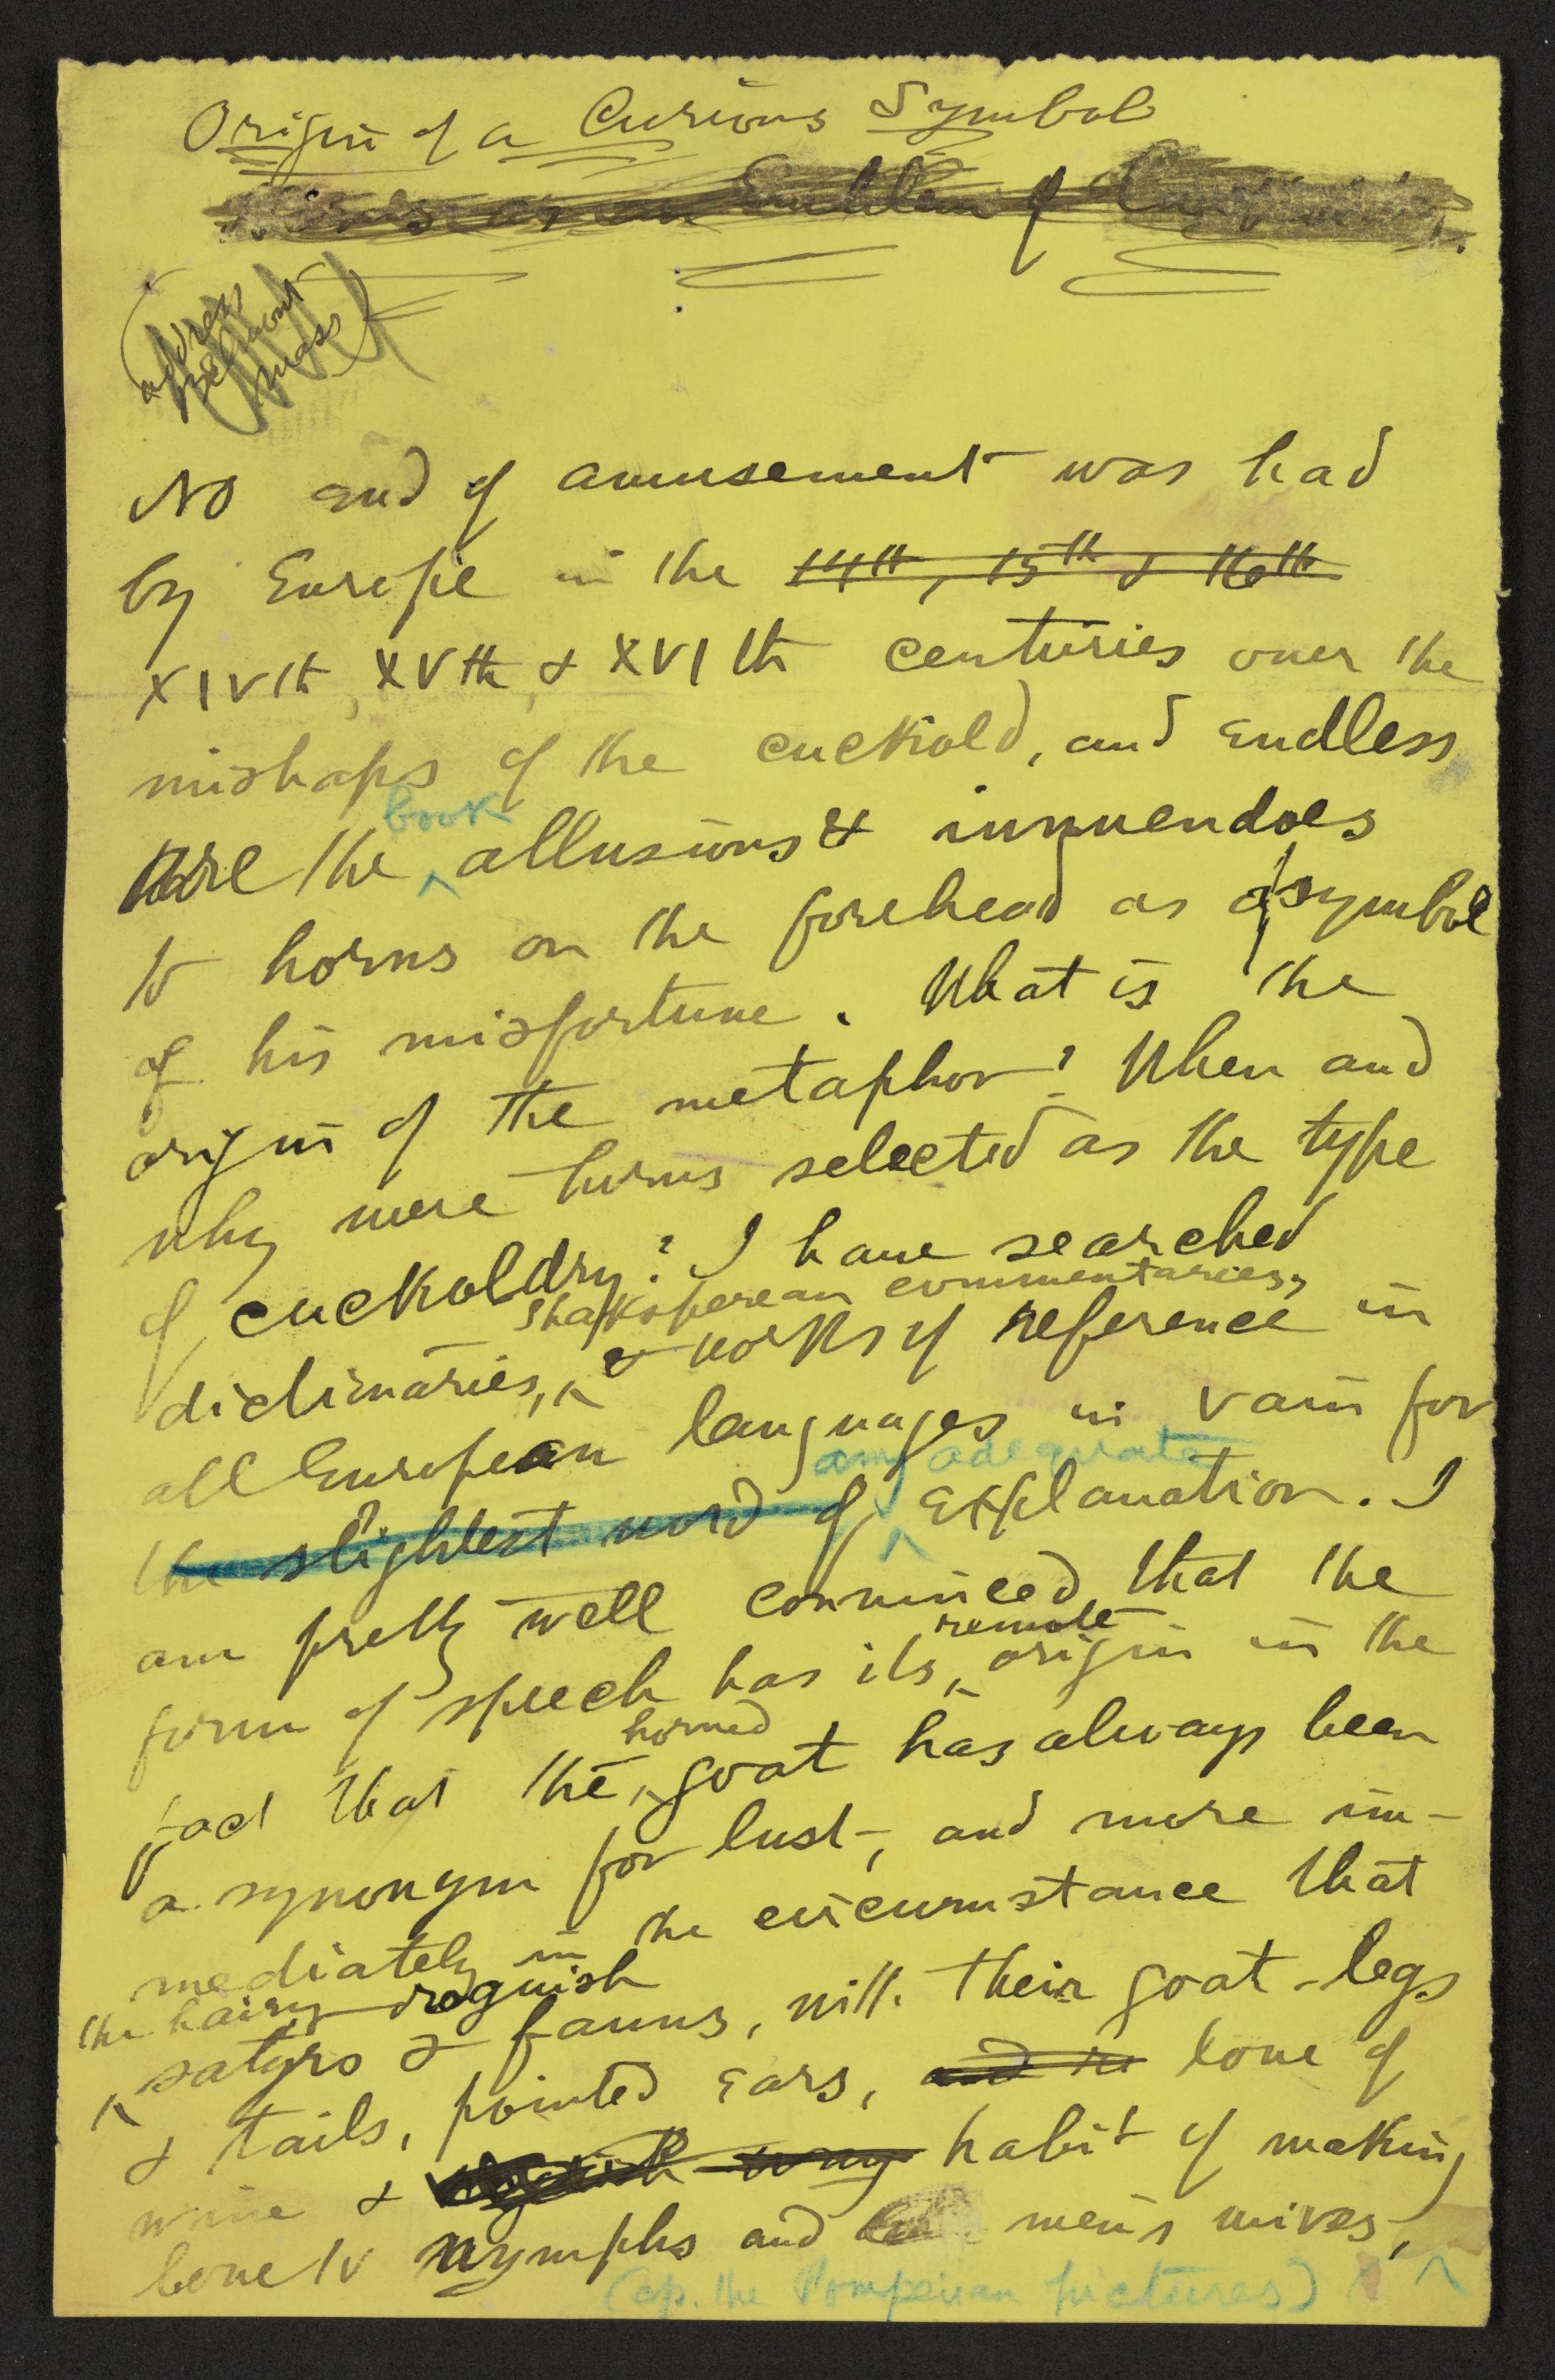 Origin of a Curious Symbol
as an Emblem of
address
Belmont
Mass
No end of amusement was had
by Europe in the 14th, 15th & 16th
XIVth, XVth, & XVIth centuries over the
mishaps of the cuckold, and endless
book
are the ^ allusions & innuendoes
to horns on the forehead as a symbol
of his misfortune. What is the
origin of the metaphor? When and
why were horns selected as the type
of cuckoldry? I have searched
Shaksperean commentaries,
dictionaries, ^ & works of reference in
all European languages in vain for
any adequate
the slightest word of ^ explanation. I
am pretty well convinced that the
remote
form of speech has its ^ origin in the
horned
fact that the ^ goat has always been
a synonym for lust, and more im-
mediately in the circumstance that
the hairy roguish
^ satyrs & fauns, with their goat-legs
& tails, pointed ears, and love of
wine & way habit of making
love to nymphs and men's wives, ^
(cp. the Pompeiian pictures)